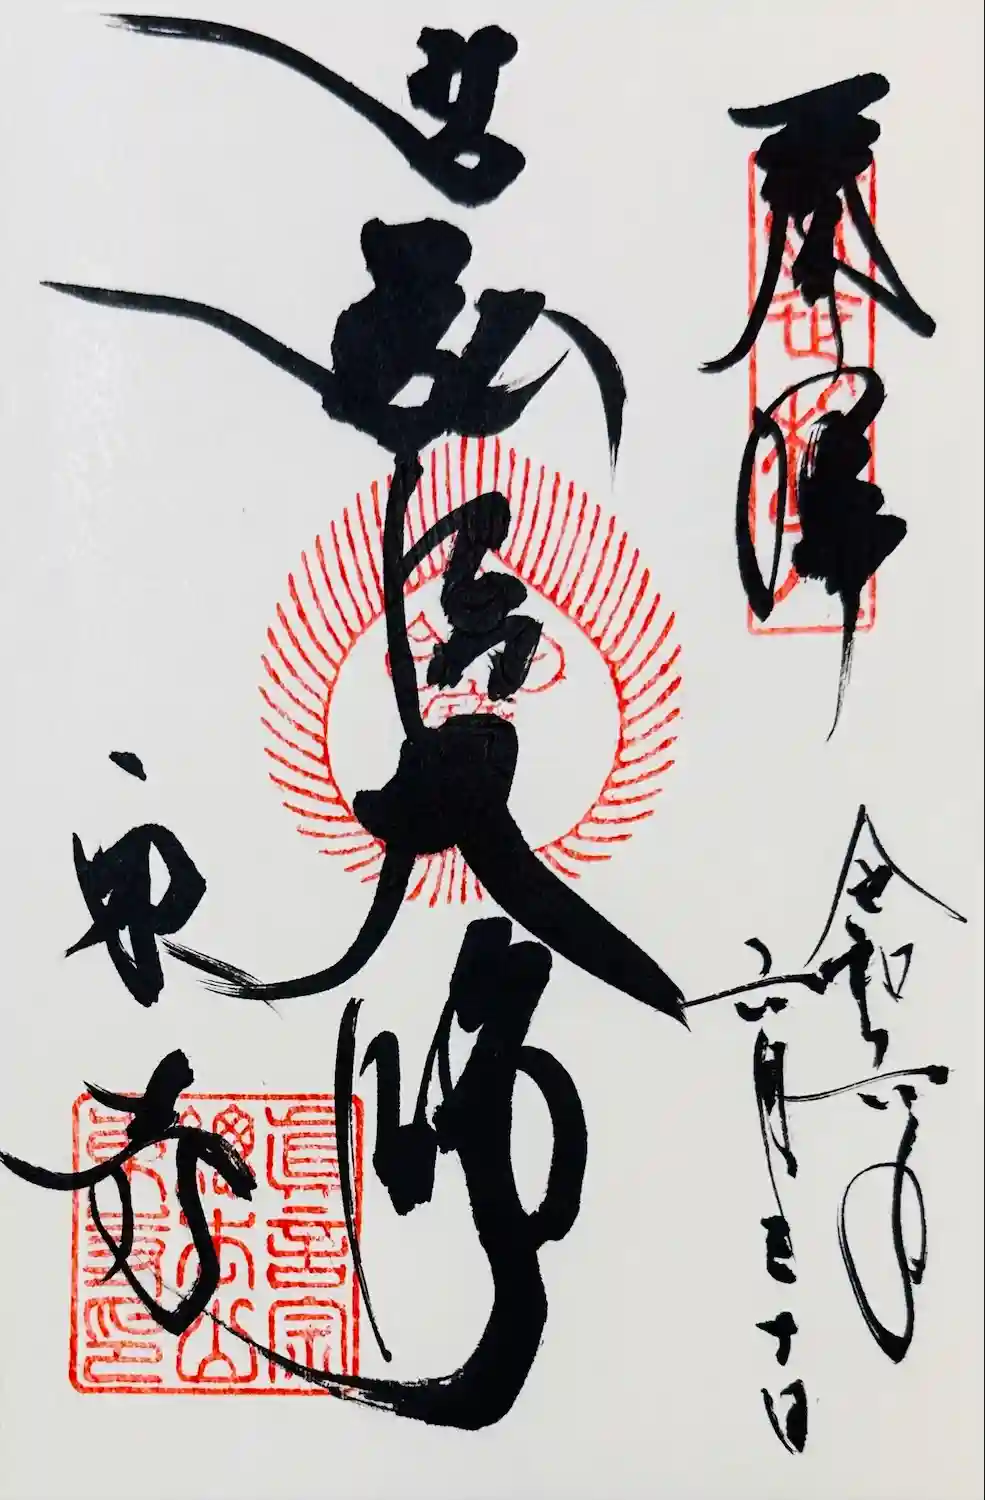 奉拝
令和六年
六月三十日
弘法大師
東寺
真言宗
總本山
東寺印